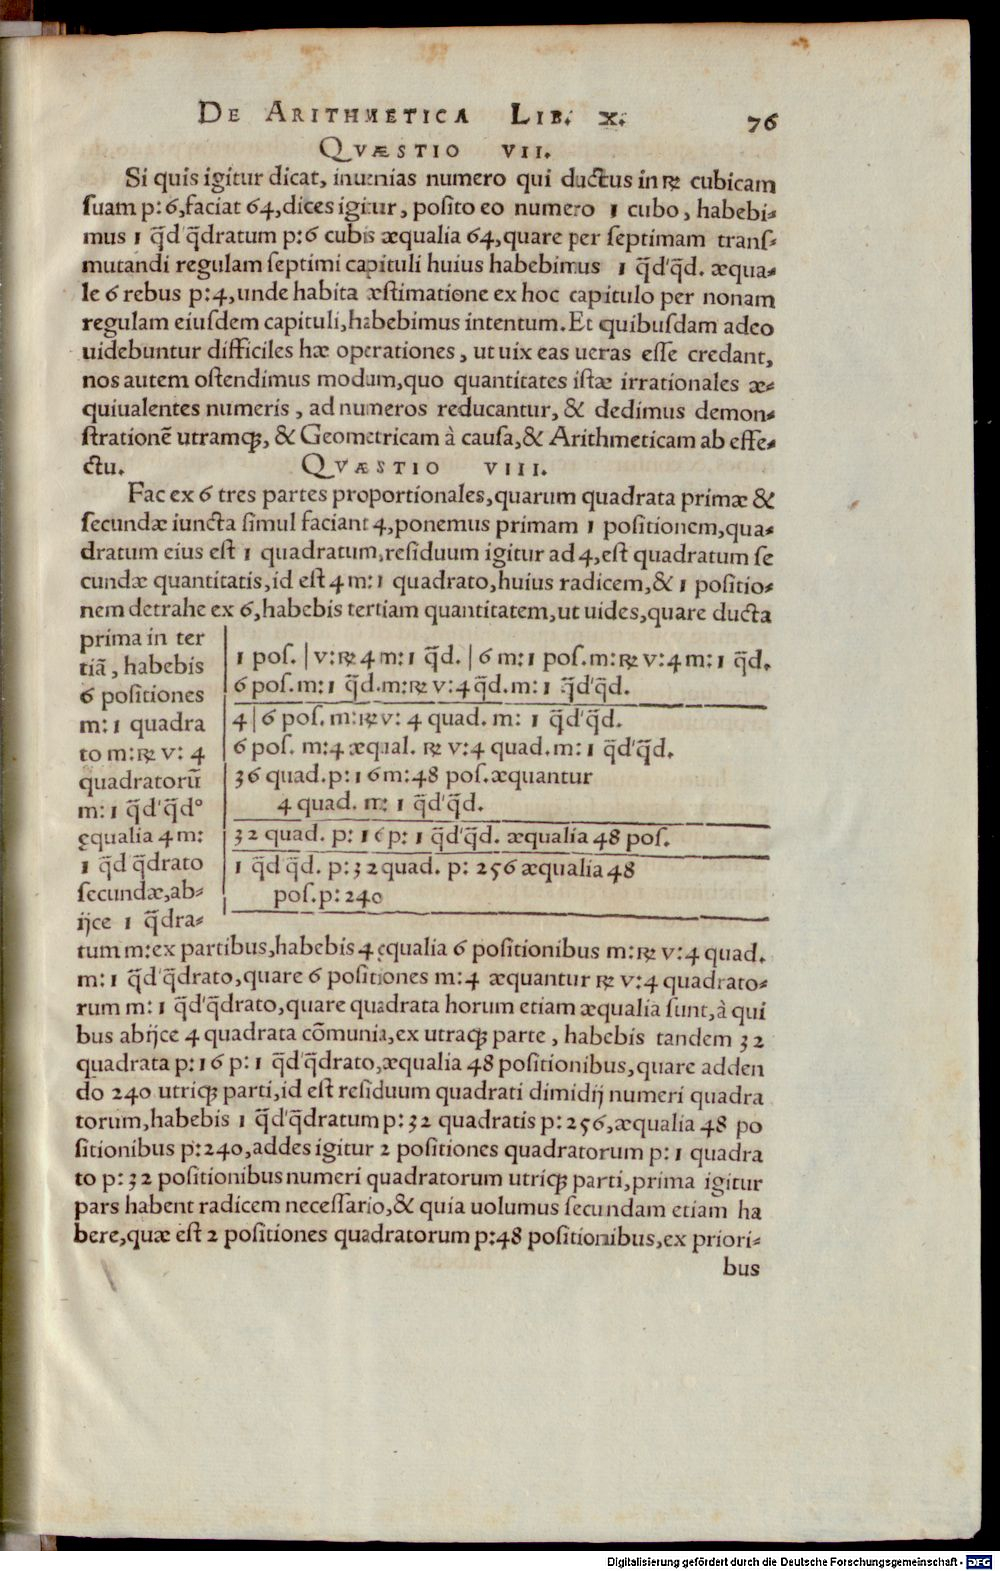 DE ARITHMETICA LIB. X. 76
QVÆSTIO VII.
Si quis igitur dicat, inuenias numero qui ductus in ℞ cubicam
suam p: 6, faciat 64, dices igitur, posito eo numero 1 cubo, habebi-
mus 1 q̃d' q̃dratum p: 6 cubis æqualia 64, quare per septimam trans-
mutandi regulam septimi capituli huius habebimus 1 q̃d'q̃d. æqua-
le 6 rebus p: 4, unde habita æstimatione ex hoc capitulo per nonam
regulam eiusdem capituli, habebimus intentum. Et quibusdam adeo
uidebuntur difficiles hæ operationes, ut uix eas ueras esse credant,
nos autem ostendimus modum, quo quantitates istæ irrationales æ-
quiualentes numeris, ad numeros reducantur, & dedimus demon-
strationẽ utramq;, & Geometricam à causa, & Arithmeticam ab effe-
ctu. QVÆSTIO VIII.
Fac ex 6 tres partes proportionales, quarum quadrata primæ &
secundæ iuncta simul faciant 4, ponemus primam 1 positionem, qua-
dratum eius est 1 quadratum, residuum igitur ad 4, est quadratum se
cundæ quantitatis, id est 4 m: 1 quadrato, huius radicem, & 1 positio-
nem detrahe ex 6, habebis tertiam quantitatem, ut uides, quare ducta
prima in ter
tiã, habebis
6 positiones
m: 1 quadra
to m: ℞ v: 4
quadratorũ
m: 1 q̃d'q̃d°
ęqualia 4 m:
1 q̃d q̃drato
secundæ, ab-
ijce 1 q̃dra-
1 pos. | v: ℞ 4 m: 1 q̃d. | 6 m: 1 pos. m: ℞ v: 4 m: 1 q̃d.
6 pos. m: 1 q̃d. m: ℞ v: 4 q̃d. m: 1 q̃d'q̃d.
4 | 6 pos. m: ℞ v: 4 quad. m: 1 q̃d'q̃d.
6 pos. m: 4 æqual. ℞ v: 4 quad. m: 1 q̃d'q̃d.
36 quad. p: 16 m: 48 pos. æquantur
4 quad. m: 1 q̃d'q̃d.
32 quad. p: 16 p: 1 q̃d'q̃d. æqualia 48 pos.
1 q̃d q̃d. p: 32 quad. p: 256 æqualia 48
pos. p: 240
tum m: ex partibus, habebis 4 ęqualia 6 positionibus m: ℞ v: 4 quad.
m: 1 q̃d'q̃drato, quare 6 positiones m: 4 æquantur ℞ v: 4 quadrato-
rum m: 1 q̃d'q̃drato, quare quadrata horum etiam æqualia sunt, à qui
bus abijce 4 quadrata cõmunia, ex utraq; parte, habebis tandem 32
quadrata p: 16 p: 1 q̃d'q̃drato, æqualia 48 positionibus, quare adden
do 240 utriq; parti, id est residuum quadrati dimidij numeri quadra
torum, habebis 1 q̃d'q̃dratum p: 32 quadratis p: 256, æqualia 48 po
sitionibus p: 240, addes igitur 2 positiones quadratorum p: 1 quadra
to p: 32 positionibus numeri quadratorum utriq; parti, prima igitur
pars habent radicem necessario, & quia uolumus secundam etiam ha
bere, quæ est 2 positiones quadratorum p: 48 positionibus, ex priori-
bus
Digitalisierung gefördert durch die Deutsche Forschungsgemeinschaft - DFG